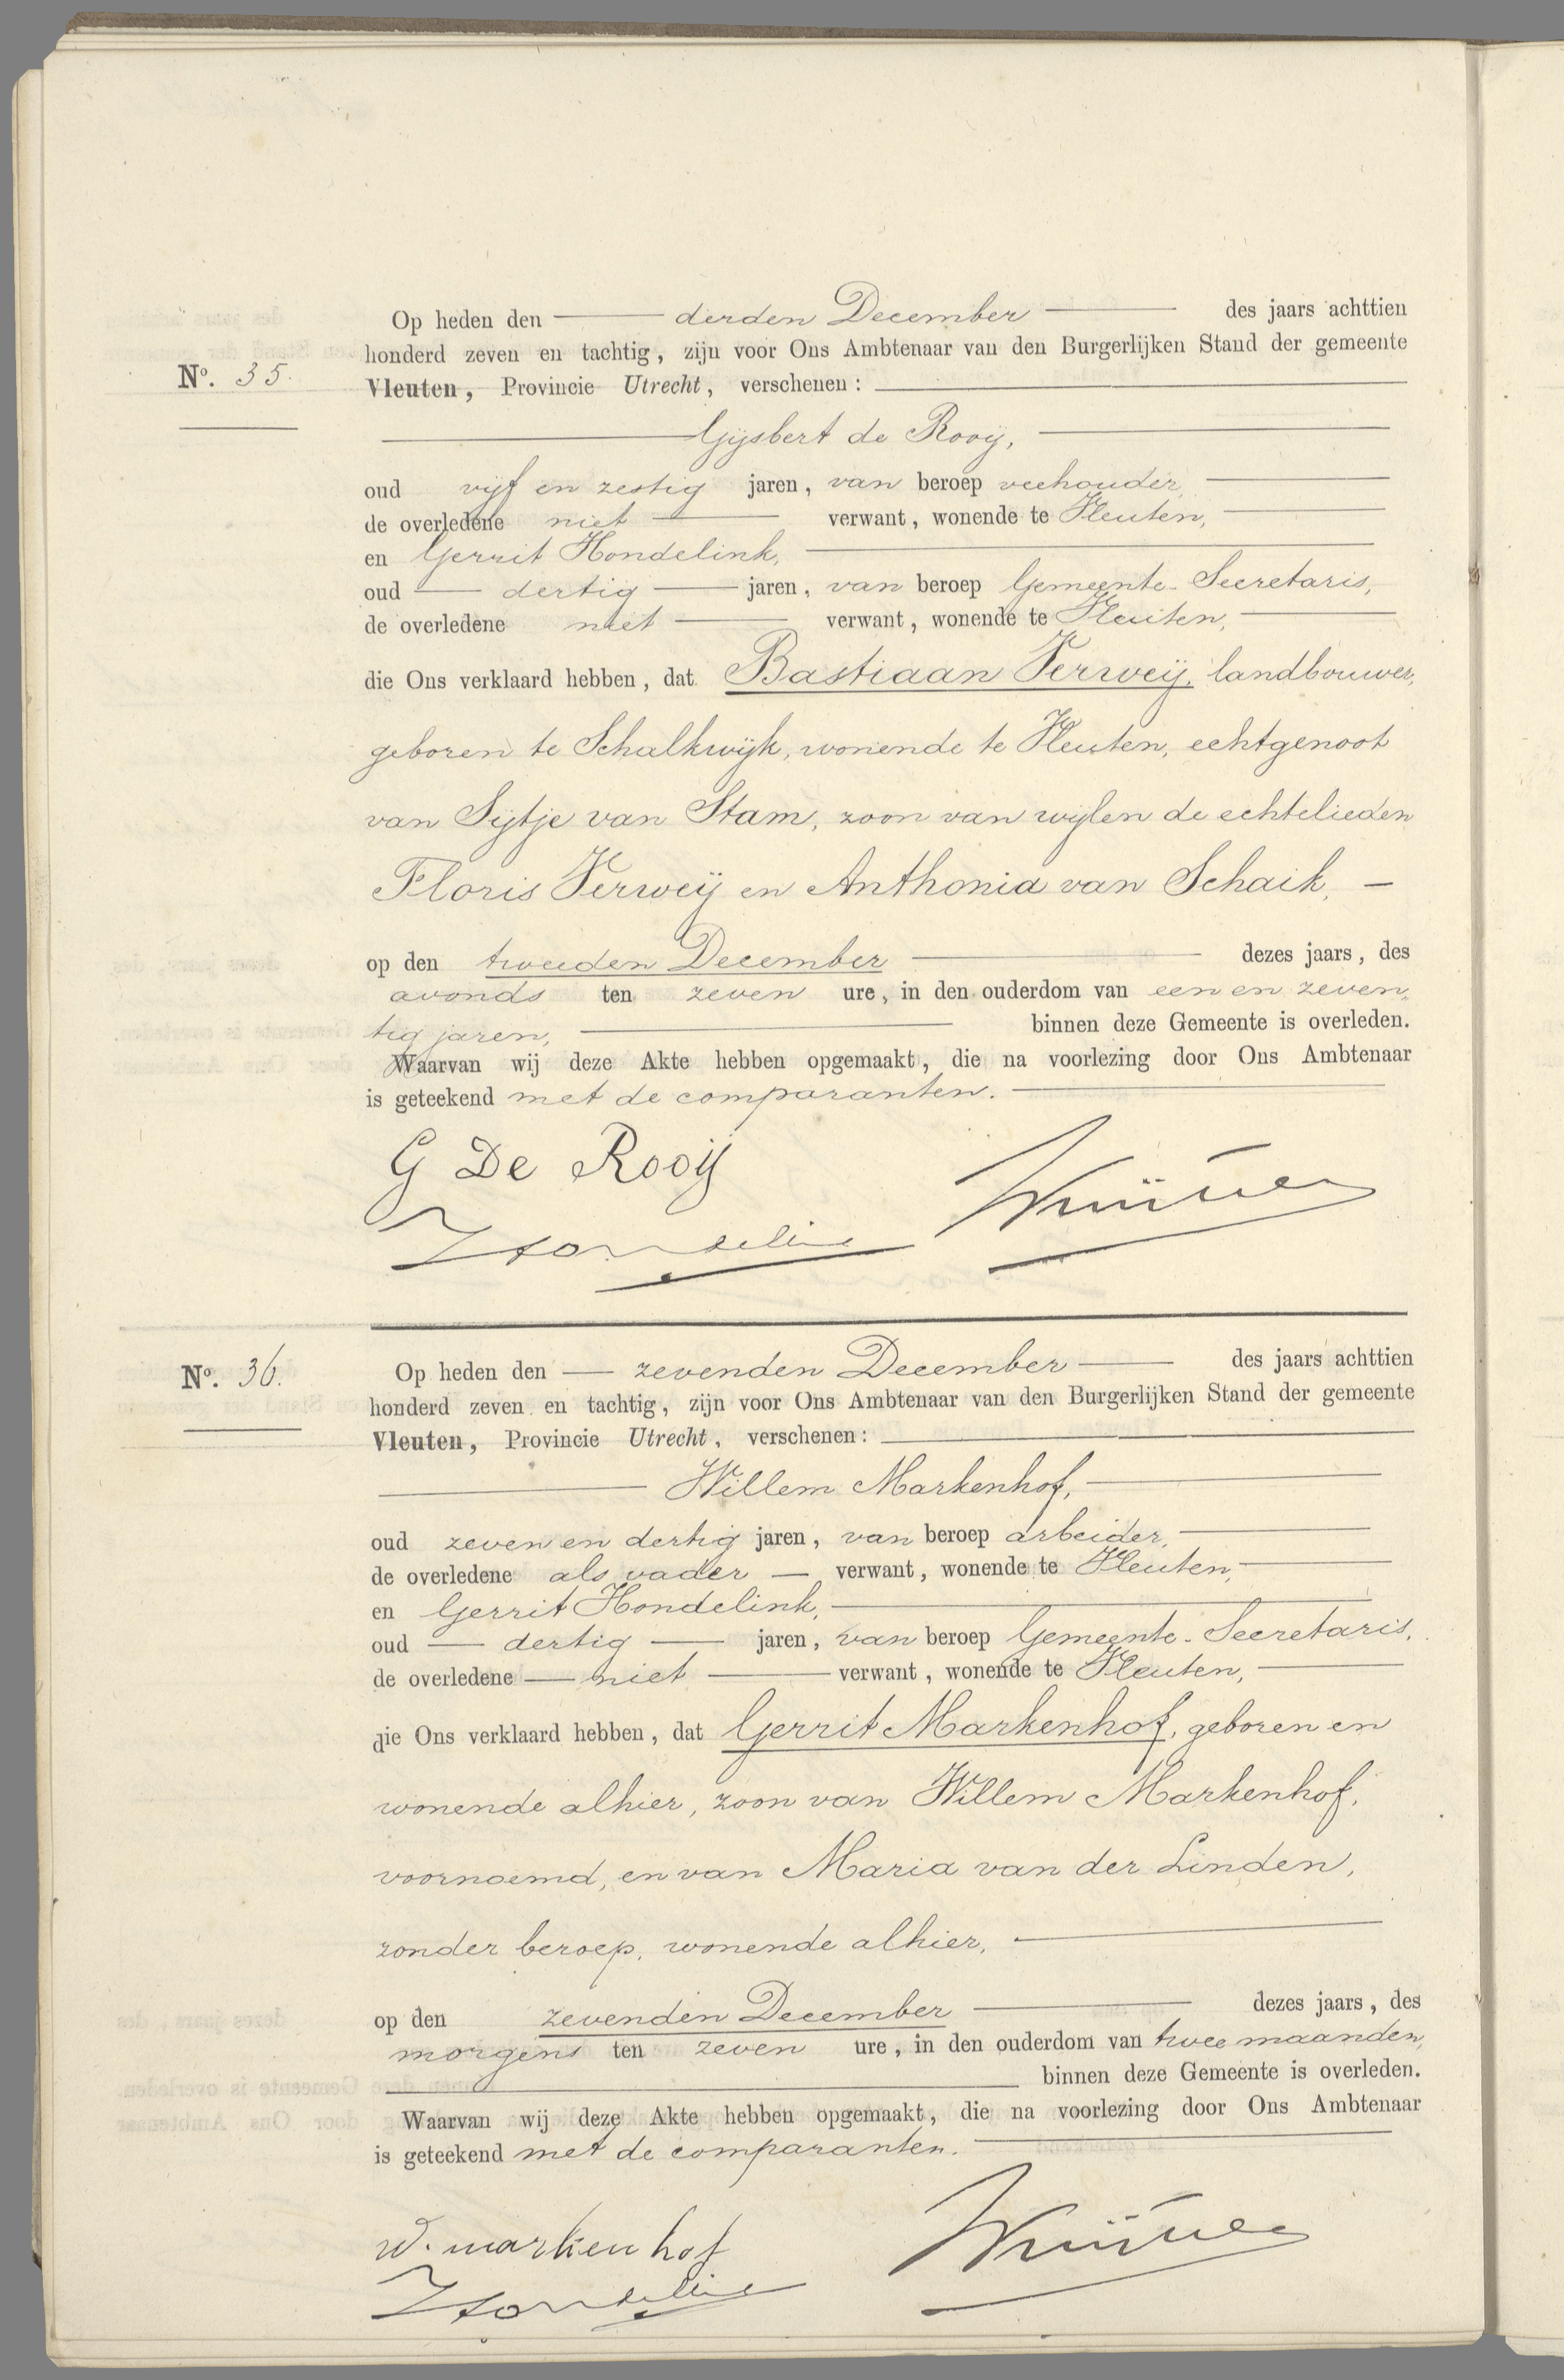 Op heden den derden December des jaars achttien
honderd zeven en tachtig, zijn voor Ons Ambtenaar van den Burgerlijken Stand der gemeente
No. 35.
Vleuten, Provincie Utrecht, verschenen:
Gijsbert de Rooij,
oud vijf en zestig jaren, van beroep veehouder,
de overledene niet verwant, wonende te Vleuten,
en Gerrit Hondelink,
oud dertig jaren, van beroep Gemeente-Secretaris,
de overledene niet verwant, wonende te Vleuten,
die Ons verklaard hebben, dat Bastiaan Verweij, landbouwer,
geboren te Schalkwijk, wonende te Vleuten, echtgenoot
van Sijtje van Stam, zoon van wijlen de echtelieden
Floris Verweij en Anthonia van Schaik,
op den tweeden December dezes jaars, des
avonds ten zeven ure, in den ouderdom van een en zeven,
tig jaren, binnen deze Gemeente is overleden.
Waarvan wij deze Akte hebben opgemaakt, die na voorlezing door Ons Ambtenaar
is geteekend met de comparanten.
G De Rooij
Hondelink
No. 36.
Op heden den zevenden December des jaars achttien
honderd zeven en tachtig, zijn voor Ons Ambtenaar van den Burgerlijken Stand der gemeente
Vleuten, Provincie Utrecht, verschenen:
Willem Markenhof,
oud zeven en dertig jaren, van beroep arbeider,
de overledene als vader verwant, wonende te Vleuten,
en Gerrit Hondelink,
oud dertig jaren, van beroep Gemeente-Secretaris,
de overledene niet verwant, wonende te Vleuten,
die Ons verklaard hebben, dat Gerrit Markenhof, geboren en
wonende alhier, zoon van Willem Markenhof,
voornoemd, en van Maria van der Linden,
zonder beroep, wonende alhier,
op den zevenden December dezes jaars, des
morgens ten zeven ure, in den ouderdom van twee maanden,
binnen deze Gemeente is overleden.
Waarvan wij deze Akte hebben opgemaakt, die na voorlezing door Ons Ambtenaar
is geteekend met de comparanten.
W. markenhof
Hondelink